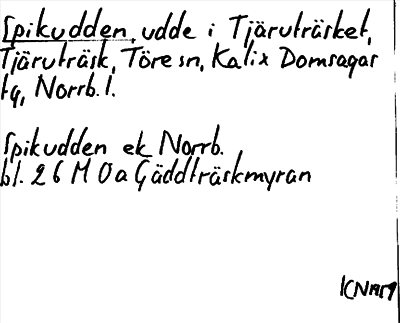 Spikudden, udde i Tjäruträsket,
Tjäruträsk, Töre sn, Kalix Domsagas
tg, Norrb. l.
Spikudden ek Norrb.
bl. 26 M 0a Gäddträskmyran